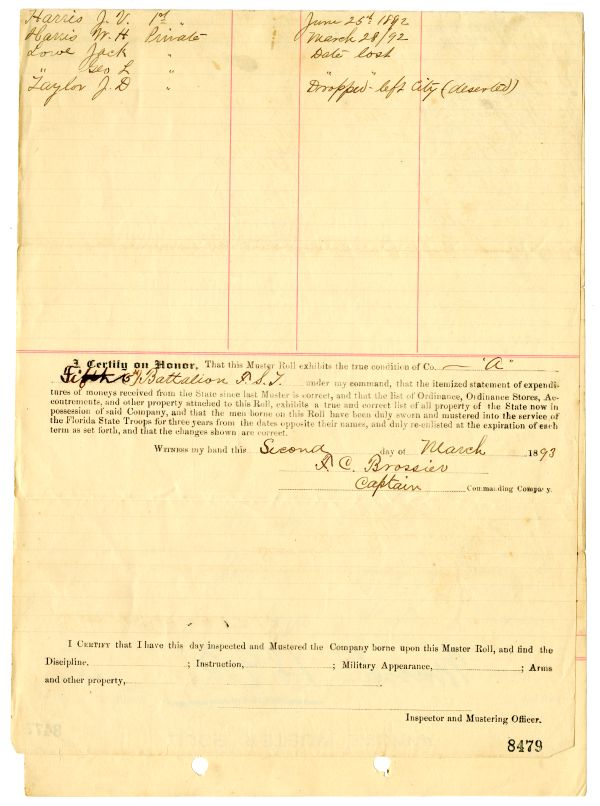 Harris J. V. 1st " June 25th 1892
Harris W. H Private March 28/92
Lowe Jack " Date lost
" Geo L "
Taylor J. D " "Dropped" - left City (deserted)
I Certify on Honor, That this Muster Roll exhibits the true condition of Co. "A"
Battalion F. S. T. under my command, that the itemized statement of expendi-
tures of moneys received from the State since last Muster is correct, and that the list of Ordinance, Ordinance Stores, Ac-
countrements, and other property attached to this Roll, exhibits a true and correct list of all property of the State now in
possession of said Company, and that the men borne on this Roll have been duly sworn and mustered into the service of
the Florida State Troops for three years from the dates opposite their names, and duly re-enlisted at the expiration of each
term as set forth, and that the changes shown are correct.
WITNESS my hand this Second day of March 1893
F. C. Brossier
Captain Commanding Company.
I CERTIFY that I have this day inspected and Mustered the Company borne upon this Muster Roll, and find the
Discipline, ; Instruction, ; Military Appearance, ; Arms
and other property,
Inspector and Mustering Officer.
8479